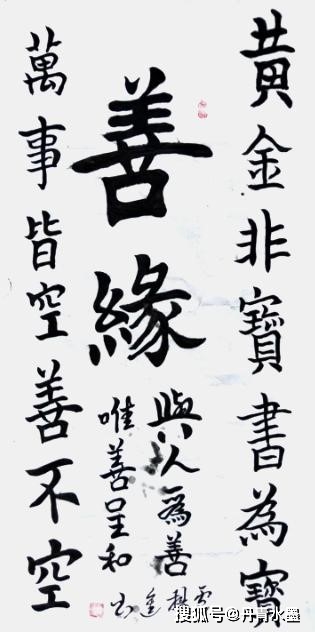 黄金非寶書為寶
善緣
與人爲善
唯善呈和
萬事皆空善不空
搜狐号@丹青水墨